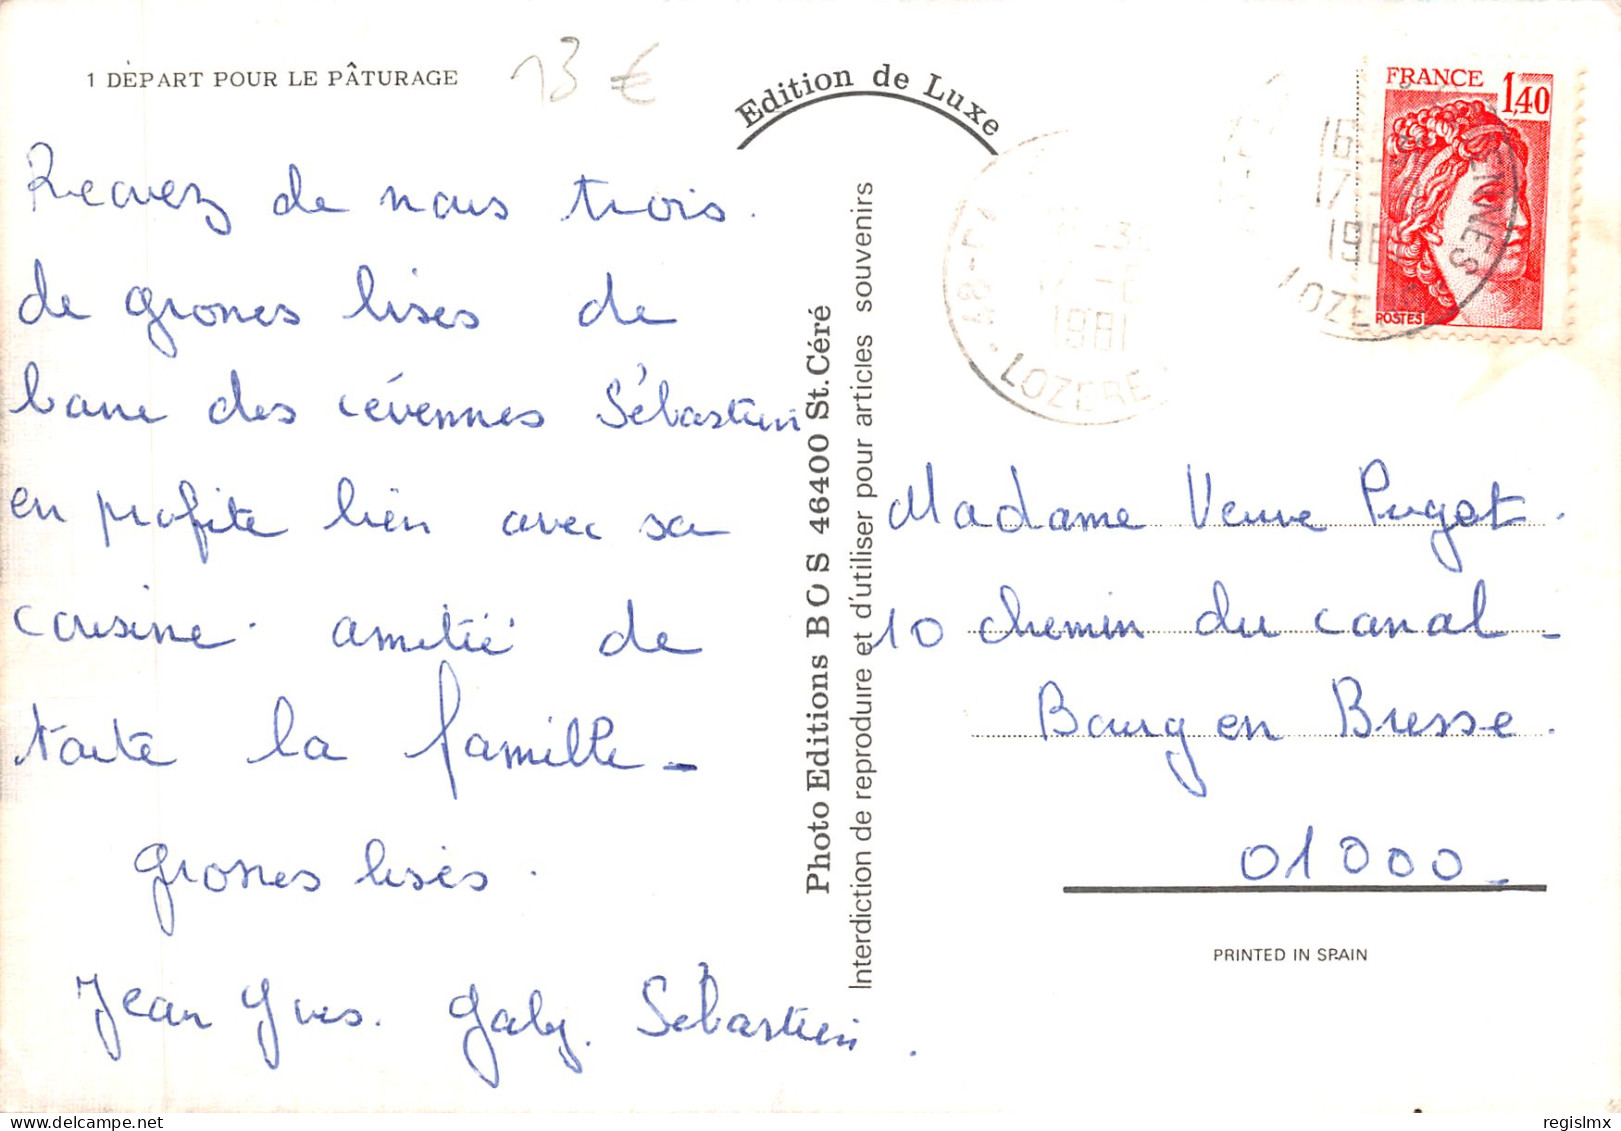 1 DÉPART POUR LE PÂTURAGE
13 €
Edition de Luxe
FRANCE 1,40
POSTES
LOZERE
1981
LOZERE
Recevez de nous trois.
de grosses bises de
bane des cévennes Sébastien
en profite bien avec sa
cousine. amitié de
toute la famille -
grosses bises.
Jean Yves. Gaby. Sébastien.
Photo Editions BOS 46400 St. Céré
Interdiction de reproduire et d'utiliser pour articles souvenirs
Madame Veuve Puget.
10 chemin du canal -
Bourg en Bresse.
01000 -
PRINTED IN SPAIN
regislmx